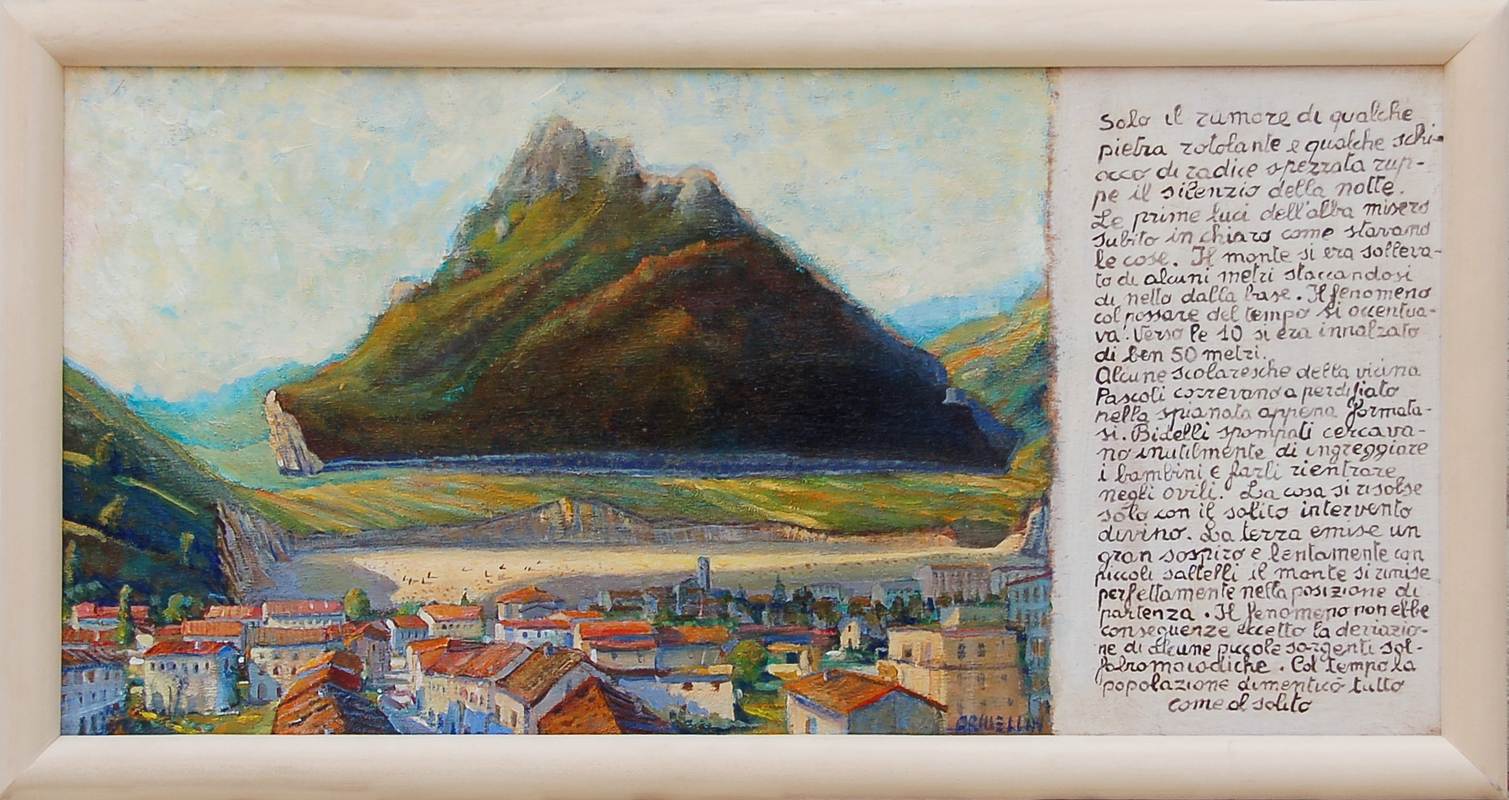 Solo il rumore di qualche
pietra rotolante e qualche schi-
occo di radice spezzata rup-
pe il silenzio della notte.
Le prime luci dell'alba misero
subito in chiaro come stavano
le cose. Il monte si era solleva-
to di alcuni metri staccandosi
di netto dalla base. Il fenomeno
col passare del tempo si accentua-
va. Verso le 10 si era innalzato
di ben 50 metri.
Alcune scolaresche della vicina
Pascoli correvano a perdifiato
nella spianata appena formata-
si. Bidelli spompati cercava-
no inutilmente di ingreggiare
i bambini e farli rientrare
negli ovili. La cosa si risolse
solo con il solito intervento
divino. La terra emise un
gran sospiro e lentamente con
piccoli saltelli il monte si rimise
perfettamente nella posizione di
partenza. Il fenomeno non ebbe
conseguenze eccetto la deviazio-
ne di alcune piccole sorgenti sol-
. Col tempo la
popolazione dimenticò tutto
come al solito